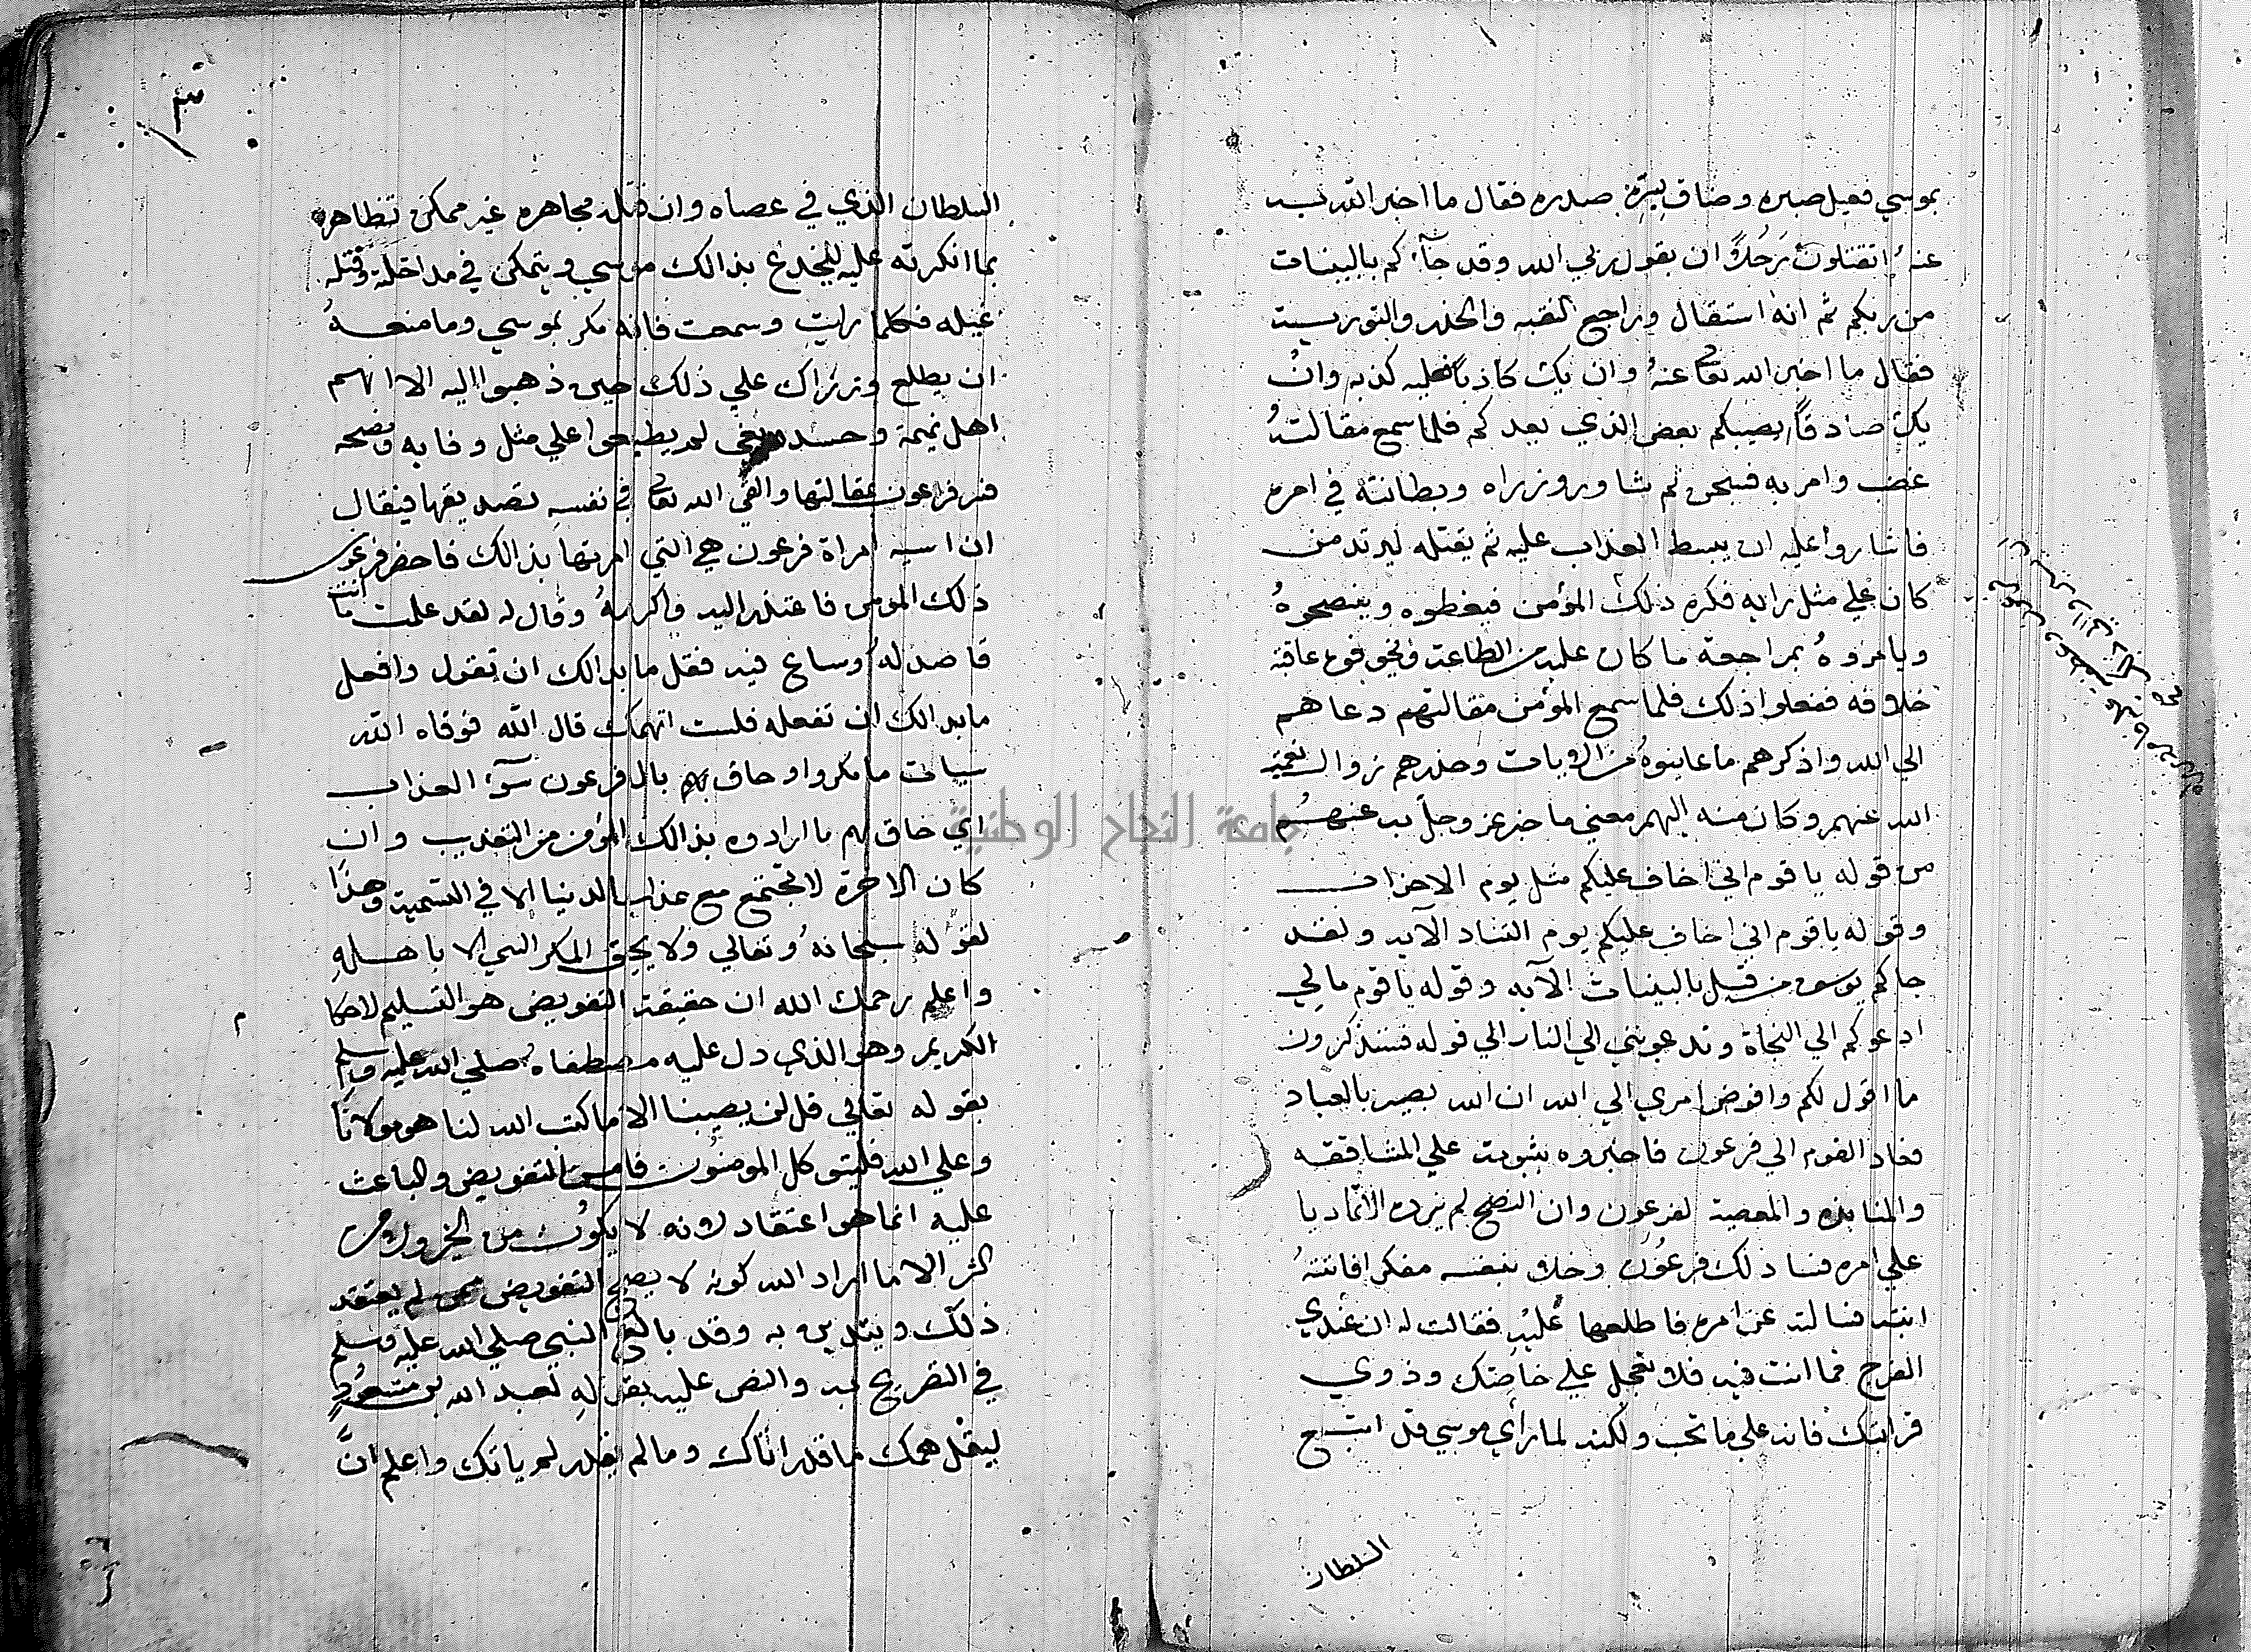 بموسي فعيل صبره وضاق بسره صدره فقال ما اخبر الله به
عنه اتقتلون رجلاً ان يقول ربي الله وقد جآءكم بالبينات
من ربكم ثم انه استقال وراجع التقيه والحذر والتوريه
فقال ما اخبر الله تعالى عنهُ وان يك كاذباً فعليه كذبه وان
يك صادقاً يصيبكم بعض الذي يعدكم فلما سمع مقالتهُ
غضب وامر به فسجن ثم شاور وزراه وبطانته في امره
فاشاروا عليه ان يبسط العذاب عليه ثم يقتله ليرتد من
كان علي مثل رايه فكره ذلك المؤمن فيعظوه وينصحوهُ
ويامروهُ بمراجعة ما كان عليه من الطاعة ويخوفوه عاقبة
خلافه ففعلوا ذلك فلما سمع المؤمن مقالتهم دعاهم
الي الله واذكرهم ما عاينوهُ من الايات وحذرهم زوال نعمة
الله عنهم وكان منه اليهم معني ما خبر عز وجل به عنهُم
من قوله ياقوم اني اخاف عليكم مثل يوم الاحزاب
وقوله ياقوم اني اخاف عليكم يوم التناد الآيه ولقد
جاكم يوسف من قبل بالبينات الآيه وقوله ياقوم ما لي
ادعوكم الي النجاة وتدعونني الي النار الي قوله فستذكرون
ما اقول لكم وافوض امري الي الله ان الله بصير بالعباد
فعاد القوم الي فرعون فاخبروه بثبوته علي المشاققه
والمنابذه والمعصية لفرعون وان النصح لم يزده الا تماديا
علي امره فساء ذلك فرعُون وخلا بنفسه مفكر افاتتهُ
ابنته فسالته عن امره فاطلعها عليه فقالت له ان عندي
الفرج مما انت فيه فلا تعجل علي خاصتك وذوي
قرابتك فانه علي ما تحب ولكنه لما راي موسي قد ابتـــع
السلطان
السلطان الذي في عصاه وان قتله مجاهره غير ممكن تظاهر
بما انكرته عليه لينخدع بذالك موسي ويتمكن في مداخلة وقتله
غيله فكلما رايت وسمعت فانه مكر بموسي وما منعهُ
ان يطلع وزراك علي ذلك حين ذهبوا اليه الا انهم
اهل نميمة وحسد لم يطبعوا علي مثل وفايه ونصحه
فسر فرعون بمقالتها والقي الله تعالى في نفسه تصديقها فيقال
ان اسيه امراة فرعون هي التي امرتها بذالك فاحضر فرعون
ذلك المومن فاعتذر اليه واكرمهُ وقال له لقد علمت ما انت
قاصد لهُ وساع فيه فقل ما بدالك ان تقول وافعل
ما بدالك ان تفعله فلست اتهمك قال الله فوقاه الله
سيات ما مكروا وحاق بهم بال فرعون سوٓء العذاب
اي حاق بهم ما ارادوه بذالك المؤمن من التعذيب وان
كان الاخرة لا تجتمع مع عذاب الدنيا الا في التسمية وهذا
لقوله سبحانهُ وتعالي ولا يحيق المكر السي الا باهـــلهِ
واعلم رحمك الله ان حقيقة التفويض هو التسليم لاحكا
م
الكريم وهو الذي دل عليه مصطفاهُ صلي الله عليه وسلم
بقوله تعالي قل لن يصيبنا الا ما كتب الله لنا هو مولانا
وعلي الله فليتوكل المومنُون فامس التفويض والباعث
عليه انما هو اعتقاد انه لا يكون من الخير ومن
الشر الا ما اراد الله كونه لا يصح التفويض ممن لم يعتقد
ذلك ويتدين به وقد بالغ النبي صلي الله عليه وسلم
في التصريح به والنص عليه بقولهِ لعبد الله بن مسعُود
ليقل همك ما قدر اتاك وما لم يقدر لم ياتك واعلم انَّ
جامعة النجاح الوطنية